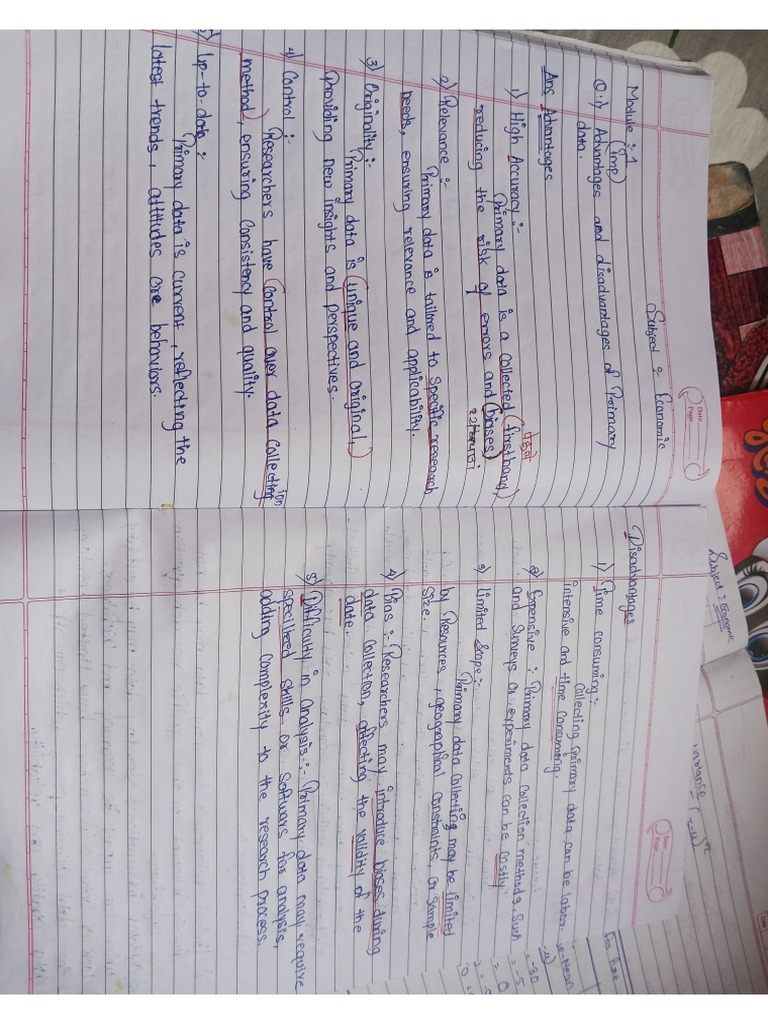 Subject : Economic
Date
Page
Module :- 1
(Imp)
Q.1) Advantages and disadvantages of Primary
data.
Ans Advantages
1) High Accuracy :-
Primary data is a collected (firsthand,)
reducing the risk of errors and (biases)
2) Relevance :-
Primary data is tailored to specific research
needs, ensuring relevance and applicability.
3) Originality :-
Primary data is (unique and original,)
Providing new insights and perspectives.
4) Control :-
Researchers have (control over data collection
method), ensuring consistency and quality.
5) Up-to-data :-
Primary data is current, reflecting the
latest trends, attitudes are behaviors.
Disadvantages
1) Time consuming :-
Collecting primary data can be labor-
intensive and time consuming.
2) Expensive :- Primary data collection methods such
and surveys or experiments can be costly
3) Limited Scope :-
Primary data collecting may be limited
by Resources, geographical constraints or sample
size.
4) Bias :- Researchers may introduce biases during
data collection, affecting the validity of the
date.
5) Difficulty in analysis :- Primary data may require
specilized skills or software for analysis,
adding complexity to the research process.
Subject : Economic
Date
Page